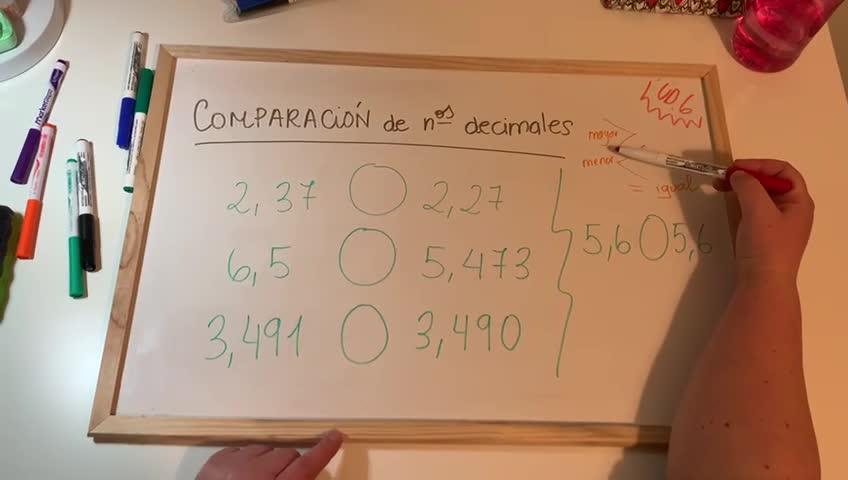 COMPARACIÓN de nos decimales
mayor >
menor <
= igual
2,37 2,27
6,5 5,473
3,491 3,490
5,6 5,6